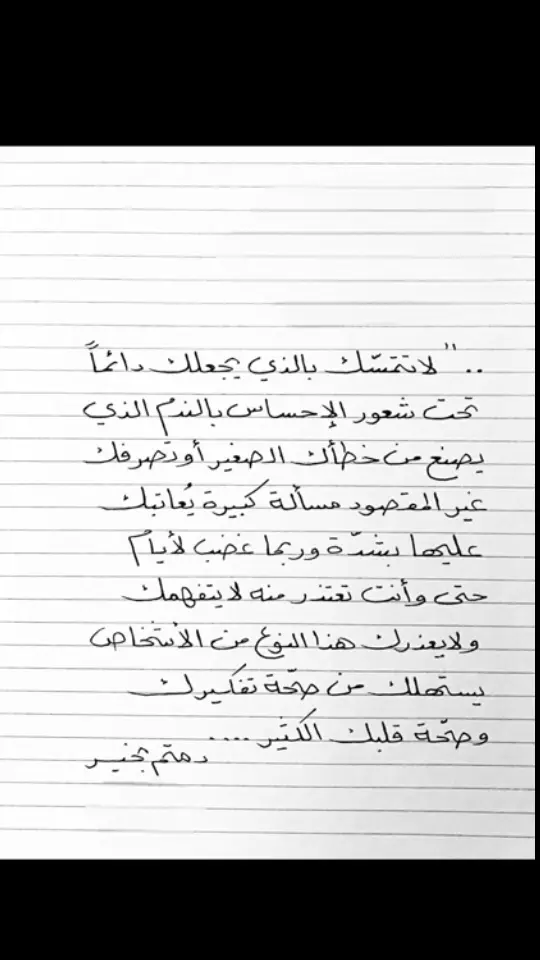 .. " لا تتمسّك بالذي يجعلك دائماً
تحت شعور الإحساس بالندم الذي
يصنع من خطأك الصغير أو تصرفك
غير المقصود مسألة كبيرة يُعاتبك
عليها بشدّة وربما غضب لأيام
حتى وأنت تعتذر منه لا يتفهمك
ولا يعذرك هذا النوع من الأشخاص
يستهلك من صحّة تفكيرك
وصحّة قلبك الكثير ....
دمتم بخير